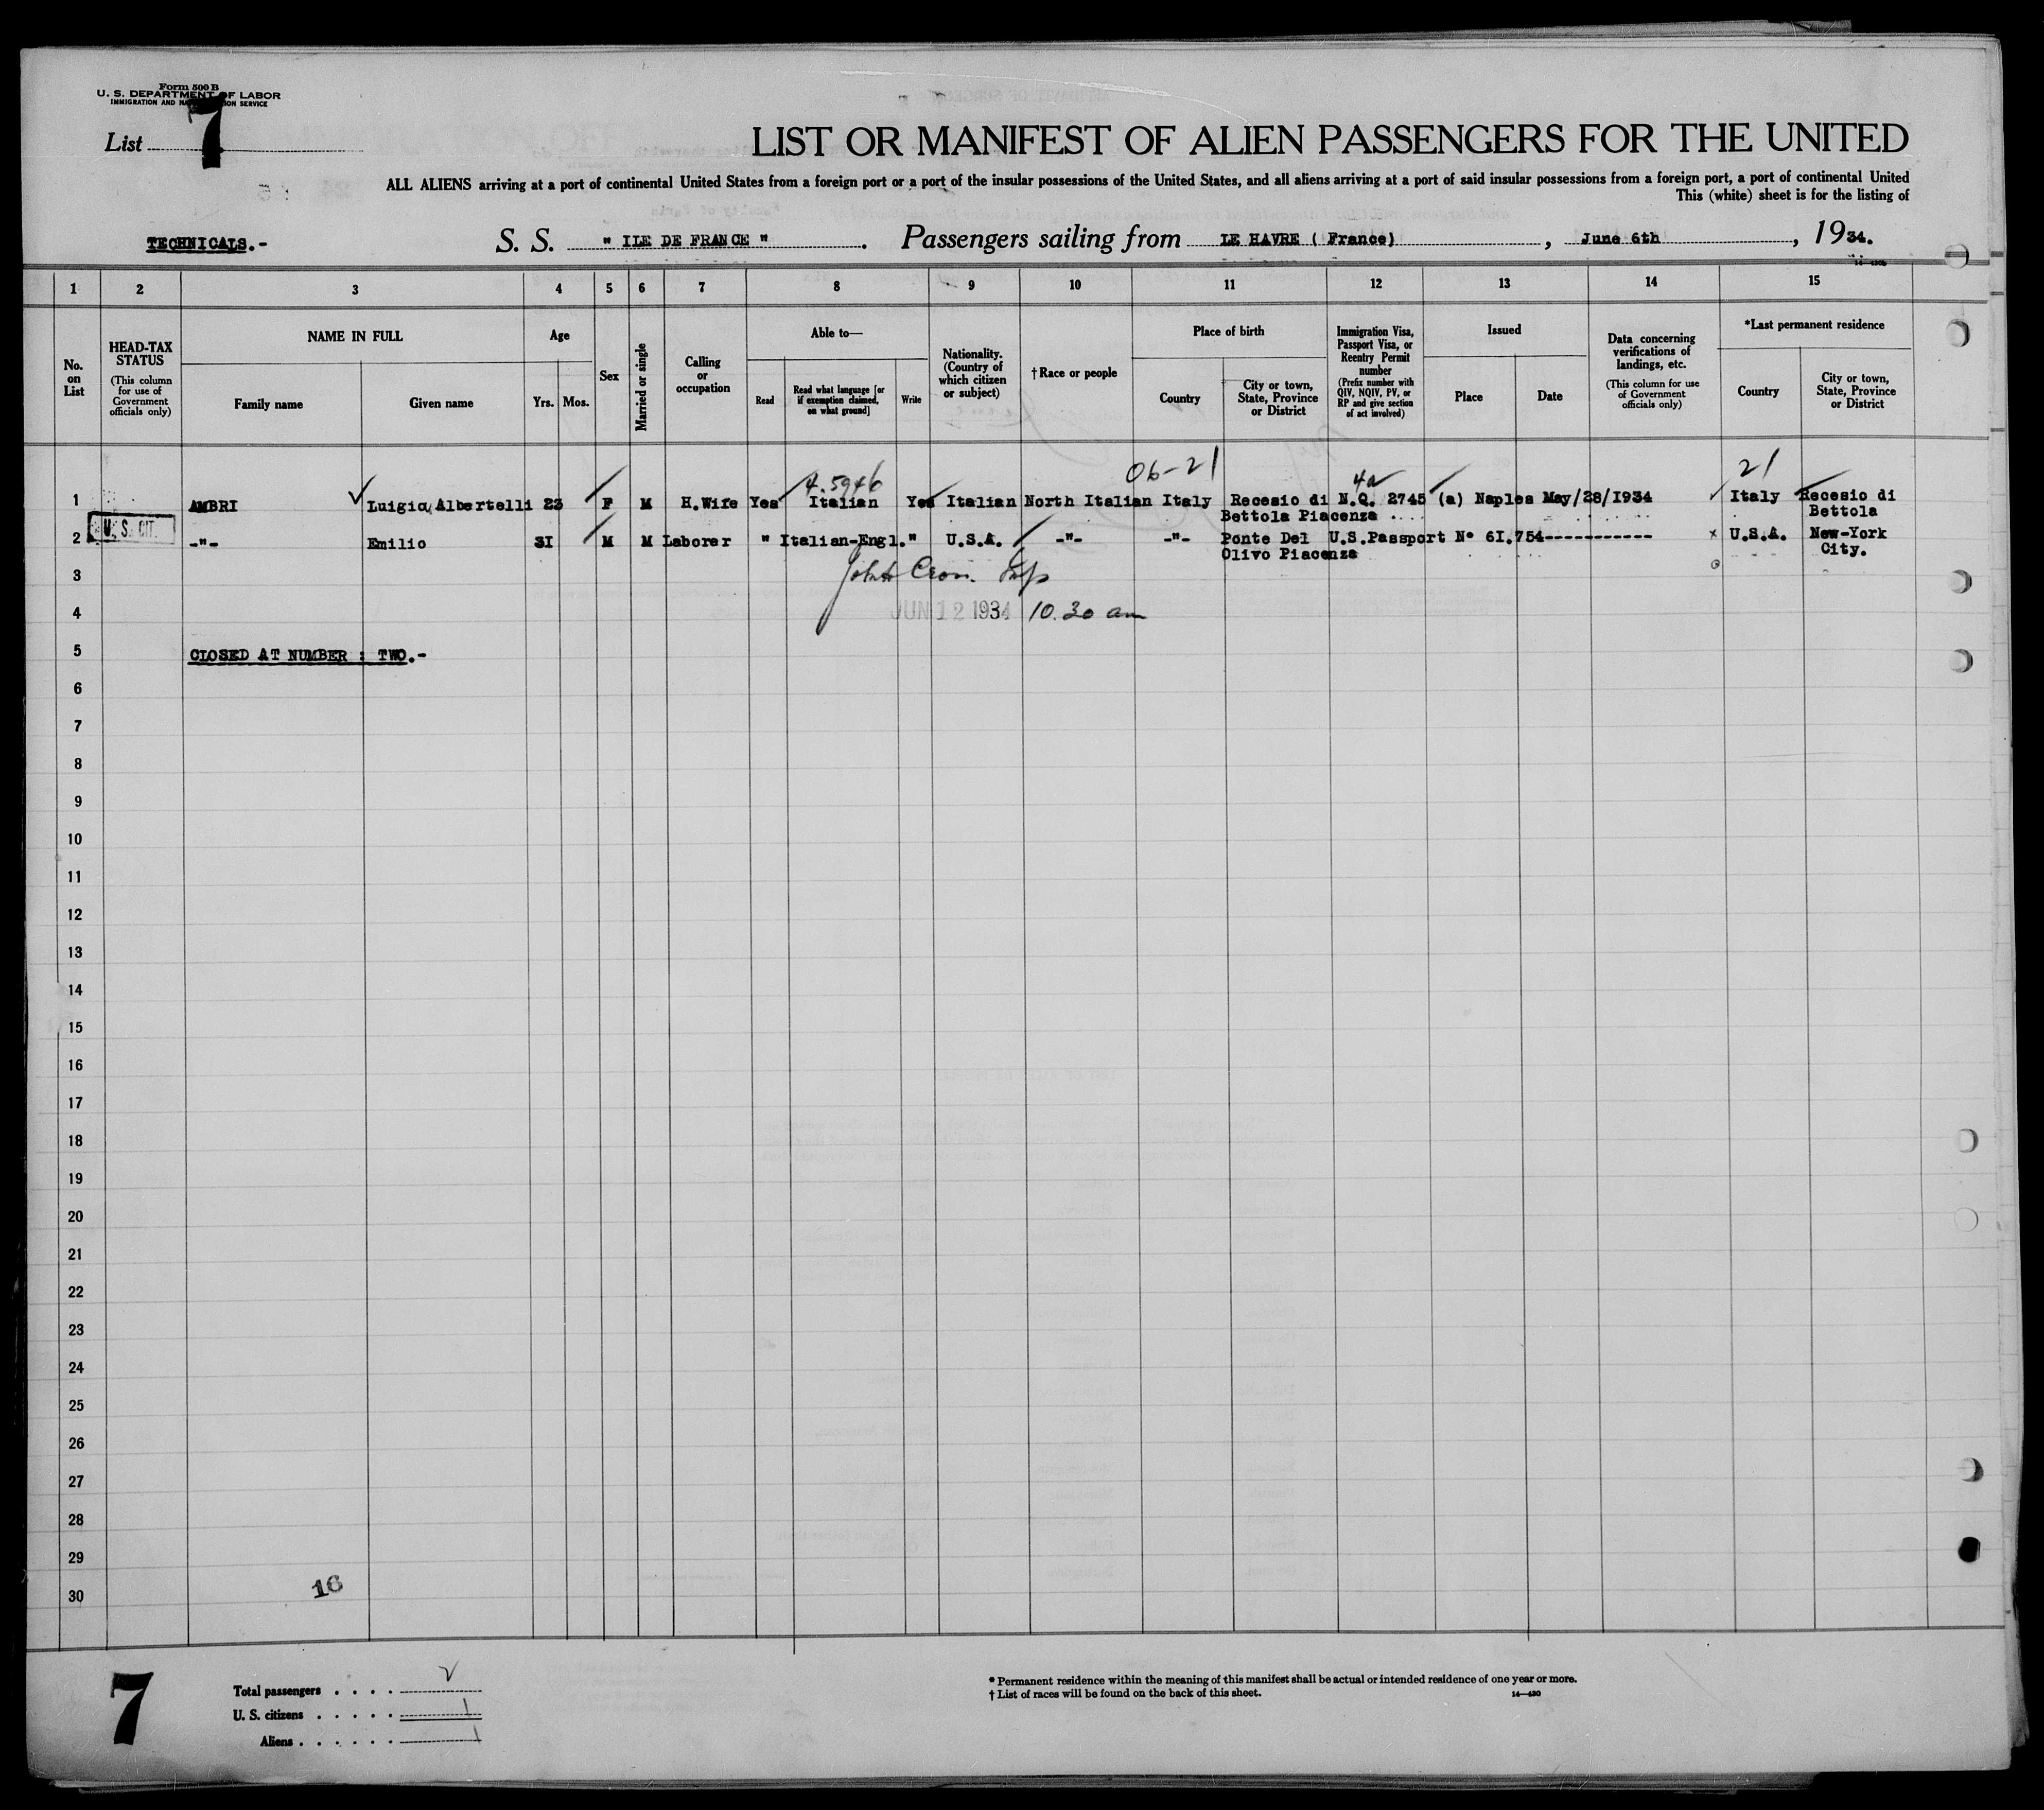 Form 500 B
U. S. DEPARTMENT OF LABOR
IMMIGRATION AND NATURALIZATION SERVICE
List 7
LIST OR MANIFEST OF ALIEN PASSENGERS FOR THE UNITED
ALL ALIENS arriving at a port of continental United States from a foreign port or a port of the insular possessions of the United States, and all aliens arriving at a port of said insular possessions from a foreign port, a port of continental United
This (white) sheet is for the listing of
TECHNICALS.- S. S. " ILE DE FRANCE ". Passengers sailing from LE HAVRE ( France) , June 6th , 1934.
1 2 3 4 5 6 7 8 9 10 11 12 13 14 15
No. on List
HEAD-TAX STATUS
(This column for use of Government officials only)
NAME IN FULL
Family name
Given name
Age
Yrs.
Mos.
Sex
Married or single
Calling or occupation
Able to—
Read
Read what language [or if exemption claimed, on what ground]
Write
Nationality. (Country of which citizen or subject)
†Race or people
Place of birth
Country
City or town, State, Province or District
Immigration Visa, Passport Visa, or Reentry Permit number
(Prefix number with QIV, NQIV, PV, or RP and give section of act involved)
Issued
Place
Date
Data concerning verifications of landings, etc.
(This column for use of Government officials only)
*Last permanent residence
Country
City or town, State, Province or District
4.5946 06-21 21
1 AMBRI Luigia Albertelli 23 F M H.Wife Yes Italian Yes Italian North Italian Italy Recesio di N.Q. 2745 (a) Naples May/28/1934 Italy Recesio di
Bettola Piacenza Bettola
U. S. CIT.
2 -"- Emilio 3I M M Laborer " Italian-Engl." U.S.A. -"- -"- Ponte Del U.S.Passport N° 6I.754----------- x U.S.A. New-York
Olivo Piacenza City.
3
4 JUN 12 1934 10.30 am
5 CLOSED AT NUMBER : TWO.-
6
7
8
9
10
11
12
13
14
15
16
17
18
19
20
21
22
23
24
25
26
27
28
29
30
16
7
Total passengers . . . . 2
U. S. citizens . . . . . 1
Aliens . . . . . . 1
* Permanent residence within the meaning of this manifest shall be actual or intended residence of one year or more.
† List of races will be found on the back of this sheet. 14—430